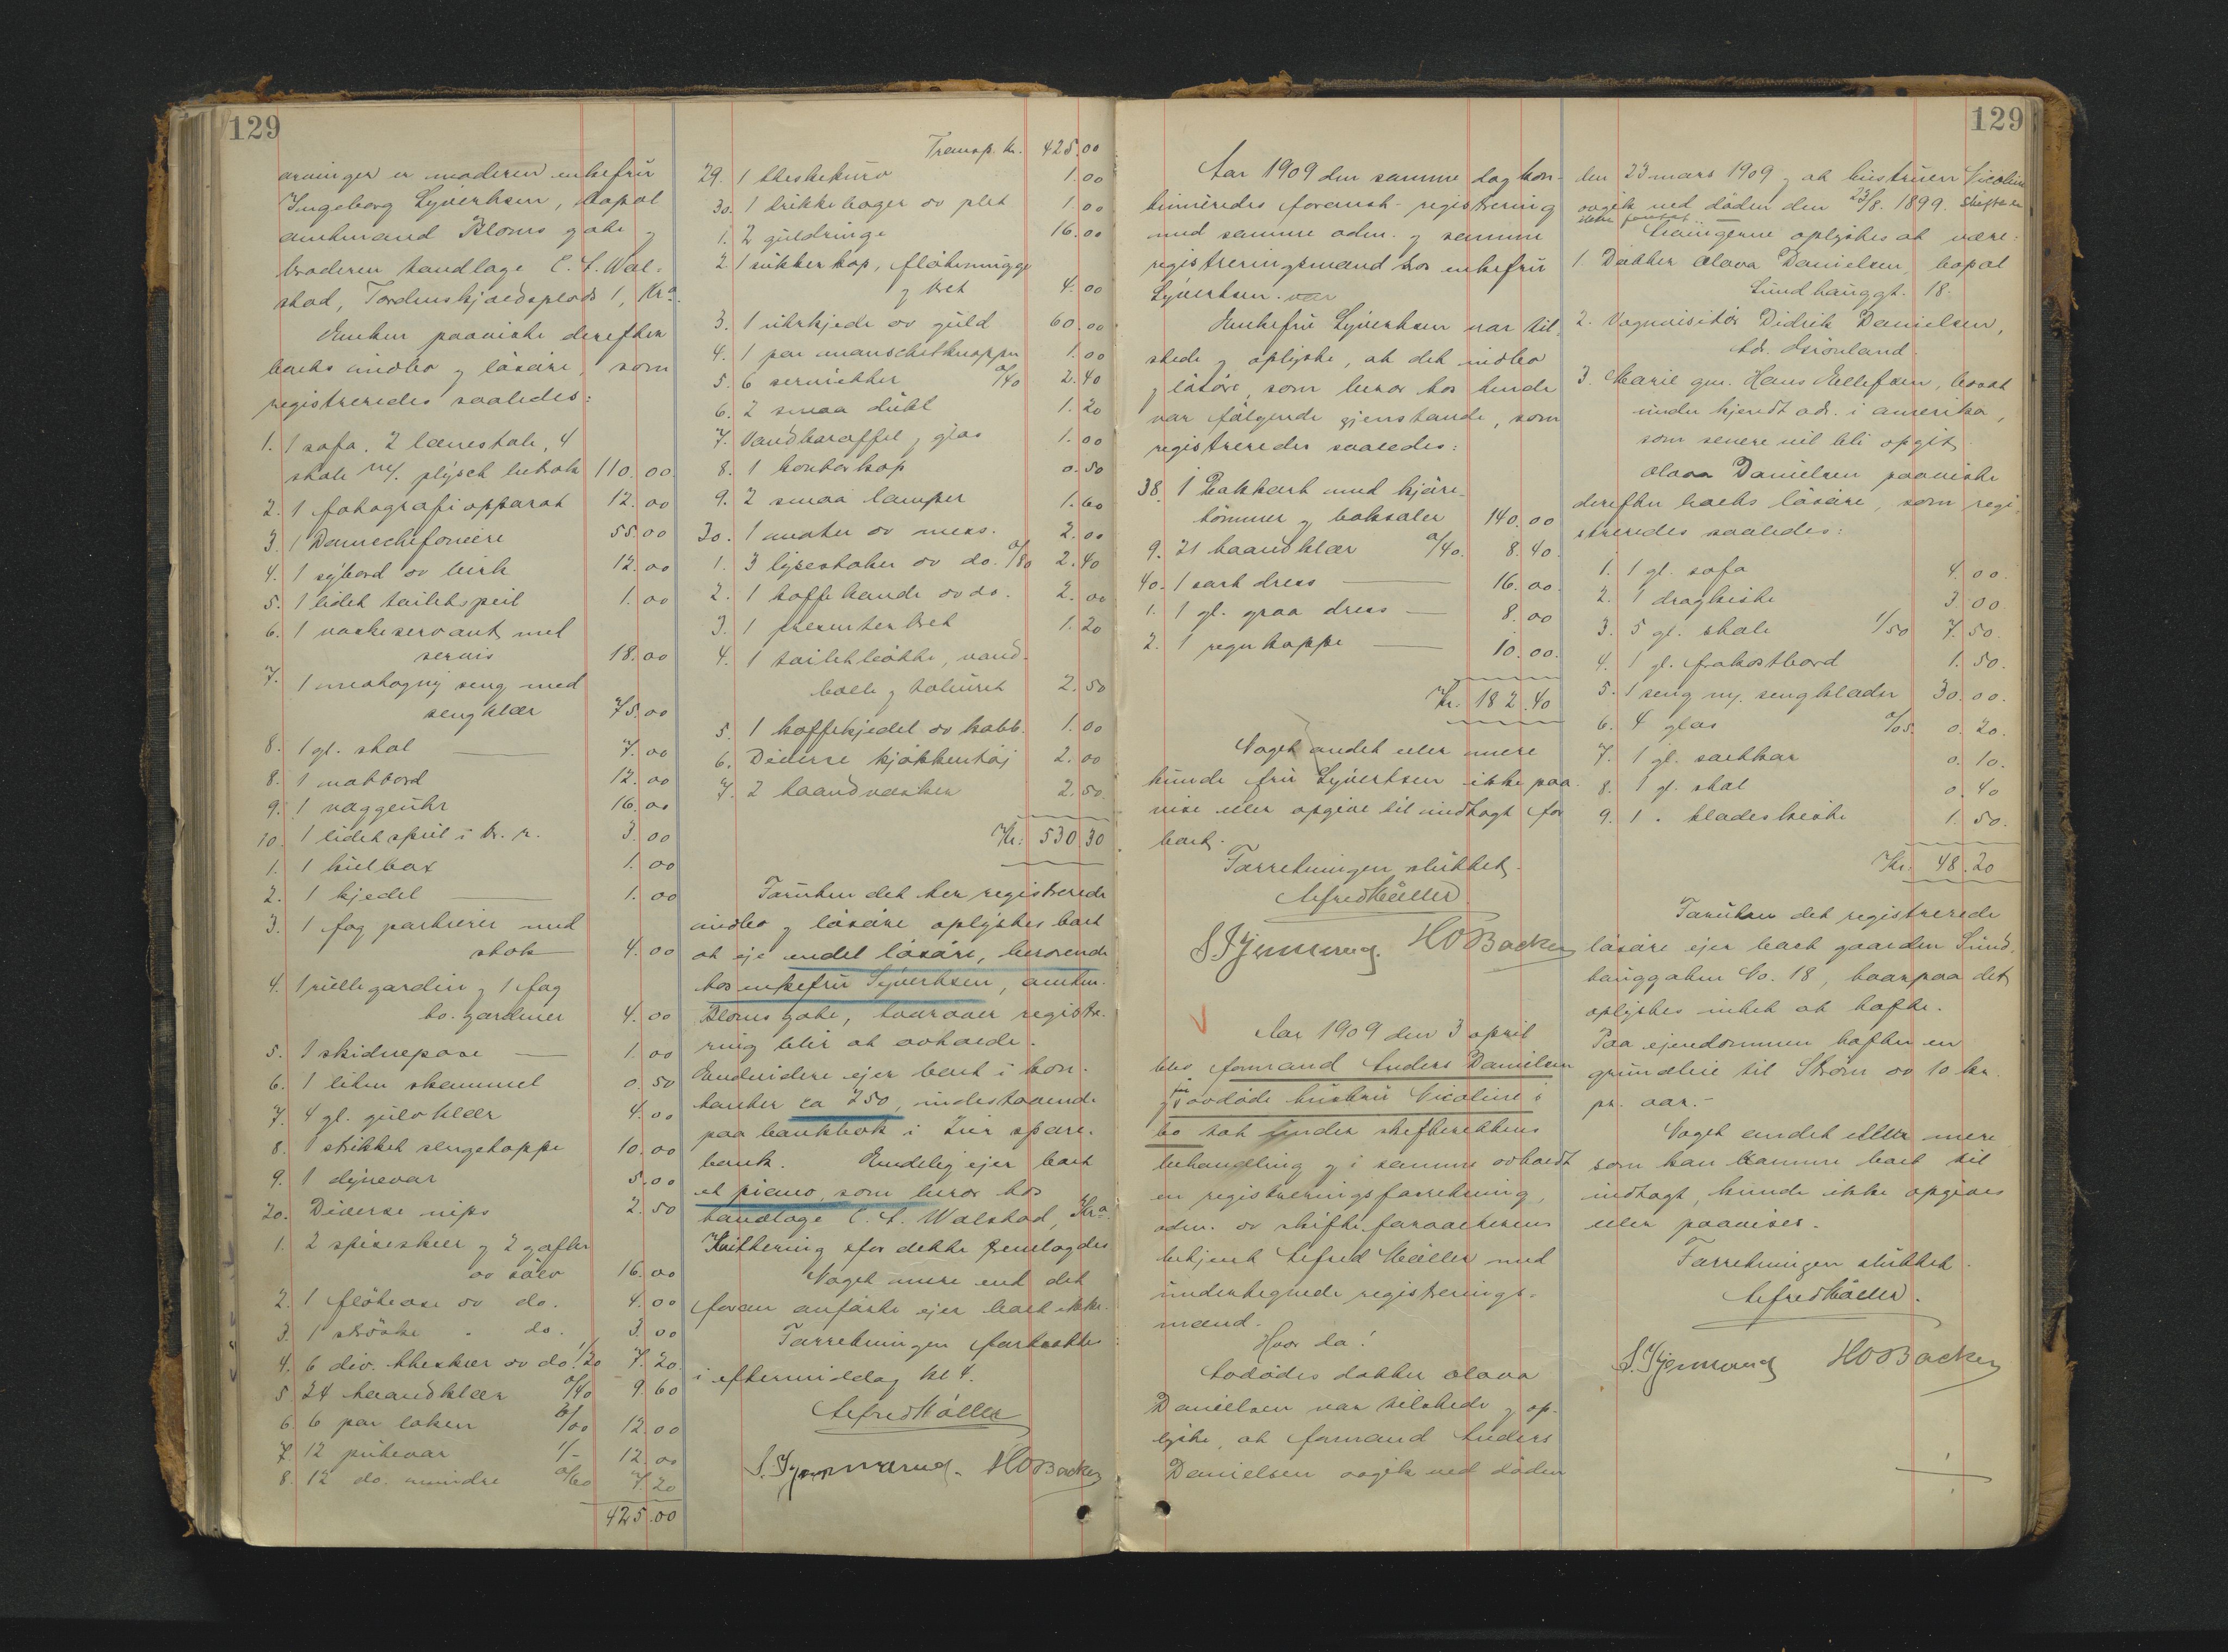 129
arvinger er moderen enkefru
Ingeborg Syvertsen, bopæl
amtmand Bloms gate og
broderen tandlæge C. F. Wal-
stad, Tordenskjoldsplads 1, Kra.
Enken paaviste derefter
boets indbo og løsøre, som
registreredes saaledes:
1. 1 sofa, 2 lænestole, 4
stole m/. plysch betræk 110.00
2. 1 fotografiapparat 12.00
3. 1 Damechefoniere 55.00
4. 1 sybord av birk 12.00
5. 1 lidet toiletspeil 1.00
6. 1 vaskeservant med
servis 18.00
7. 1 mahogny seng med
sengklær 75.00
8. 1 gl. stol 7.00
8. 1 natbord 12.00
9. 1 væggeuhr 16.00
10. 1 lidet speil i br. r. 3.00
1. 1 kulbox 1.00
2. 1 kjedel 1.00
3. 1 fag portierer med
stok 4.00
4. 1 rullegardin og 1 fag
bo. gardiner 4.00
5. 1 skidnepose 1.00
6. 1 liten skammel 0.50
7. 4 gl. gulvklær 4.00
8. 1 strikket sengeteppe 10.00
9. 1 dynevar 5.00
20. Diverse nips 2.50
1. 2 spiseskeer og 2 gafler
av sølv 16.00
2. 1 fløteøse av do. 4.00
3. 1 strøske " do. 3.00
4. 6 div. theskeer av do. 1/20 7.20
5. 24 haandklær 0/40 9.60
6. 6 par laken 2/00 12.00
7. 12 putevar 1/- 12.00
8. 12 do. mindre 0/60 7.20
425.00
Transp. kr. 425.00
29. 1 theskekurv 1.00
30. 1 drikkebæger av plet 1.00
1. 2 guldringe 16.00
2. 1 sukkerkop, fløtemugge
og bret 4.00
3. 1 uhrkjede av guld 60.00
4. 1 par manschetknapper 1.00
5. 6 servietter 0/40 2.40
6. 2 smaa duker 1.20
7. Vandkaraffel og glas 1.00
8. 1 kontorkop 0.50
9. 2 smaa lamper 1.60
30. 1 morter av mess. 2.00
1. 3 lysestaker av do. 0/80 2.40
2. 1 kaffekande av do. 2.00
3. 1 presenterbret 1.20
4. 1 toiletbøtte, vand-
bolle og toluret 2.50
5. 1 kaffekjedel av kobb. 1.00
6. Diverse kjøkkentøi 2.00
7. 2 haandvæsker 2.50
Kr. 530.30
Foruten det her registrerede
indbo og løsøre oplystes boet
at eje endel løsøre, beroende
hos enkefru Syvertsen, amtm.
Bloms gate, hvorover registr-
ring blir at avholde.
Endvidere ejer boet i kon-
tanter ca 250, indestaaende
paa bankbok i Lier spare-
bank. Endelig ejer boet
et piano, som beror hos
tandlæge C. F. Walstad, Kra.
Kvittering for dette fremlagdes
Noget mere end det
foran anførte ejer boet ikke.
Forretningen fortsættes
i eftermiddag kl 4.
Alfred Møller
H O Backer
129
Aar 1909 den samme dag kon-
tinueredes foranst. registrering
med samme adm. og samme
registreringsmænd hos enkefru
Syvertsen. var
Enkefru Syvertsen var til
stede og oplyste, at det indbo
og løsøre, som beror hos hende
var følgende gjenstande, som
registreredes saaledes:
38. 1 Bakkart med kjøre-
tømmer og boksaler 140.00
9. 21 haandklær 0/40. 8.40
40. 1 sort dress 16.00
1. 1 gl. graa dress 8.00
2. 1 regnkappe 10.00.
Kr. 182.40
Noget andet eller mere
kunde fru Syvertsen ikke paa-
vise eller opgive til indtægt for
boet.
Forretningen sluttet.
Alfred Møller
H O Backer
Aar 1909 den 3 april
blev formand Anders Danielsen
og før avdøde hustru Nicoline's
bo tat under skifterettens
behandling og i samme avholdt
en registreringsforretning,
adm. av skifteforvalterens
betjent Alfred Møller med
undertegnede registrerings-
mænd.
Hvor da!
Avdødes datter Olava
Danielsen var tilstede og op-
lyste, at formand Anders
Danielsen avgik ved døden
den 23 mars 1909 og at hustruen Nicoline
avgik ved døden den 23/8. 1899. Skifte er
ikke foretat.
Arvingerne oplystes at være:
1. Datter Olava Danielsen, bopæl
Sundhauggt. 18.
2. Vognvisitør Didrik Danielsen,
Adr. Grønland.
3. Marie gm. Hans Ellefsen, bosat
under kjendt adr. i Amerika,
som senere vil bli opgit.
Olava Danielsen paaviste
derefter boets løsøre, som regi-
streredes saaledes:
1. 1 gl. sofa 4.00.
2. 1 dragkiste 3.00
3. 5 gl. stole 1/50 7.50.
4. 1 gl. frokostbord 1.50.
5. 1 seng m/. sengklæder 30.00.
6. 4 glas 0/05. 0.20.
7. 1 gl. saltkar 0.10.
8. 1 gl. stol 0.40
9. 1 " klædeskiste 1.50.
Kr. 48.20
Foruten det registrerede
løsøre ejer boet gaarden Sund-
hauggaten No. 18, hvorpaa det
oplystes intet at hæfte.
Paa ejendommen hæfter en
grundleie til Strøm av 10 kr.
pr. aar.-
Noget andet eller mere
som kan komme boet til
indtægt, kunde ikke opgives
eller paavises.
Forretningen sluttet.
Alfred Møller.
H O Backer